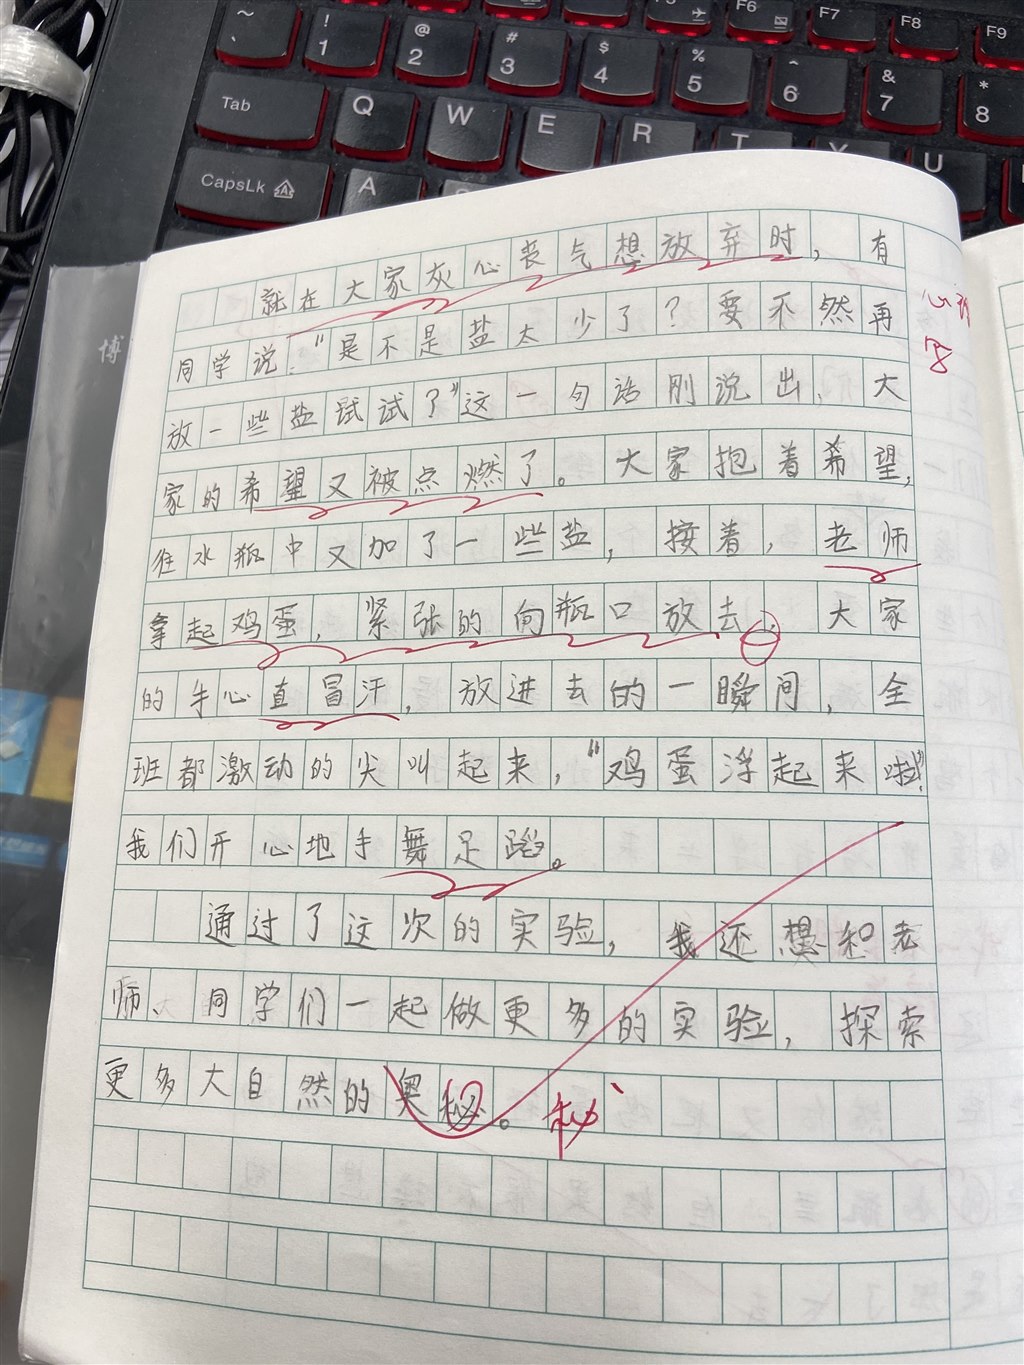 ~
`
!
1
@
2
#
3
$
4
%
5
^
6
&
7
*
8
F6
F7
F8
F9
Tab
Q
W
E
R
T
Y
U
CapsLk
A
博
就在大家灰心丧气想放弃时，有
同学说："是不是盐太少了？要不然再
放一些盐试试了"这一句话刚说出，大
家的希望又被点燃了。大家抱着希望，
往水瓶中又加了一些盐，接着，老师
拿起鸡蛋，紧张的向瓶口放去，大家
的手心直冒汗，放进去的一瞬间，全
班都激动的尖叫起来，"鸡蛋浮起来啦"
我们开心地手舞足蹈。
通过了这次的实验，我还想和老
师、同学们一起做更多的实验，探索
更多大自然的奥秘。
秘